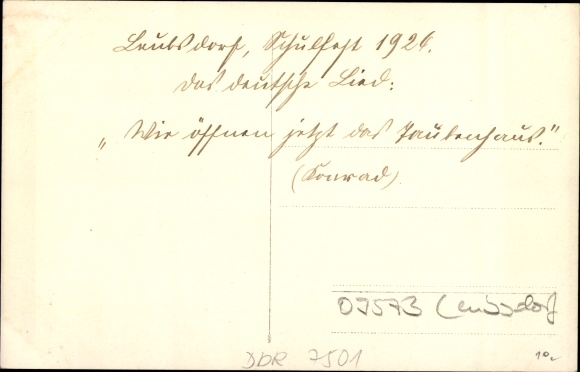 Leubsdorf, Schulfest 1926.
Das deutsche Lied:
„Wir öffnen jetzt das Taubenhaus."
(Konrad)
09573 Leubsdorf
DDR 7501
10,-